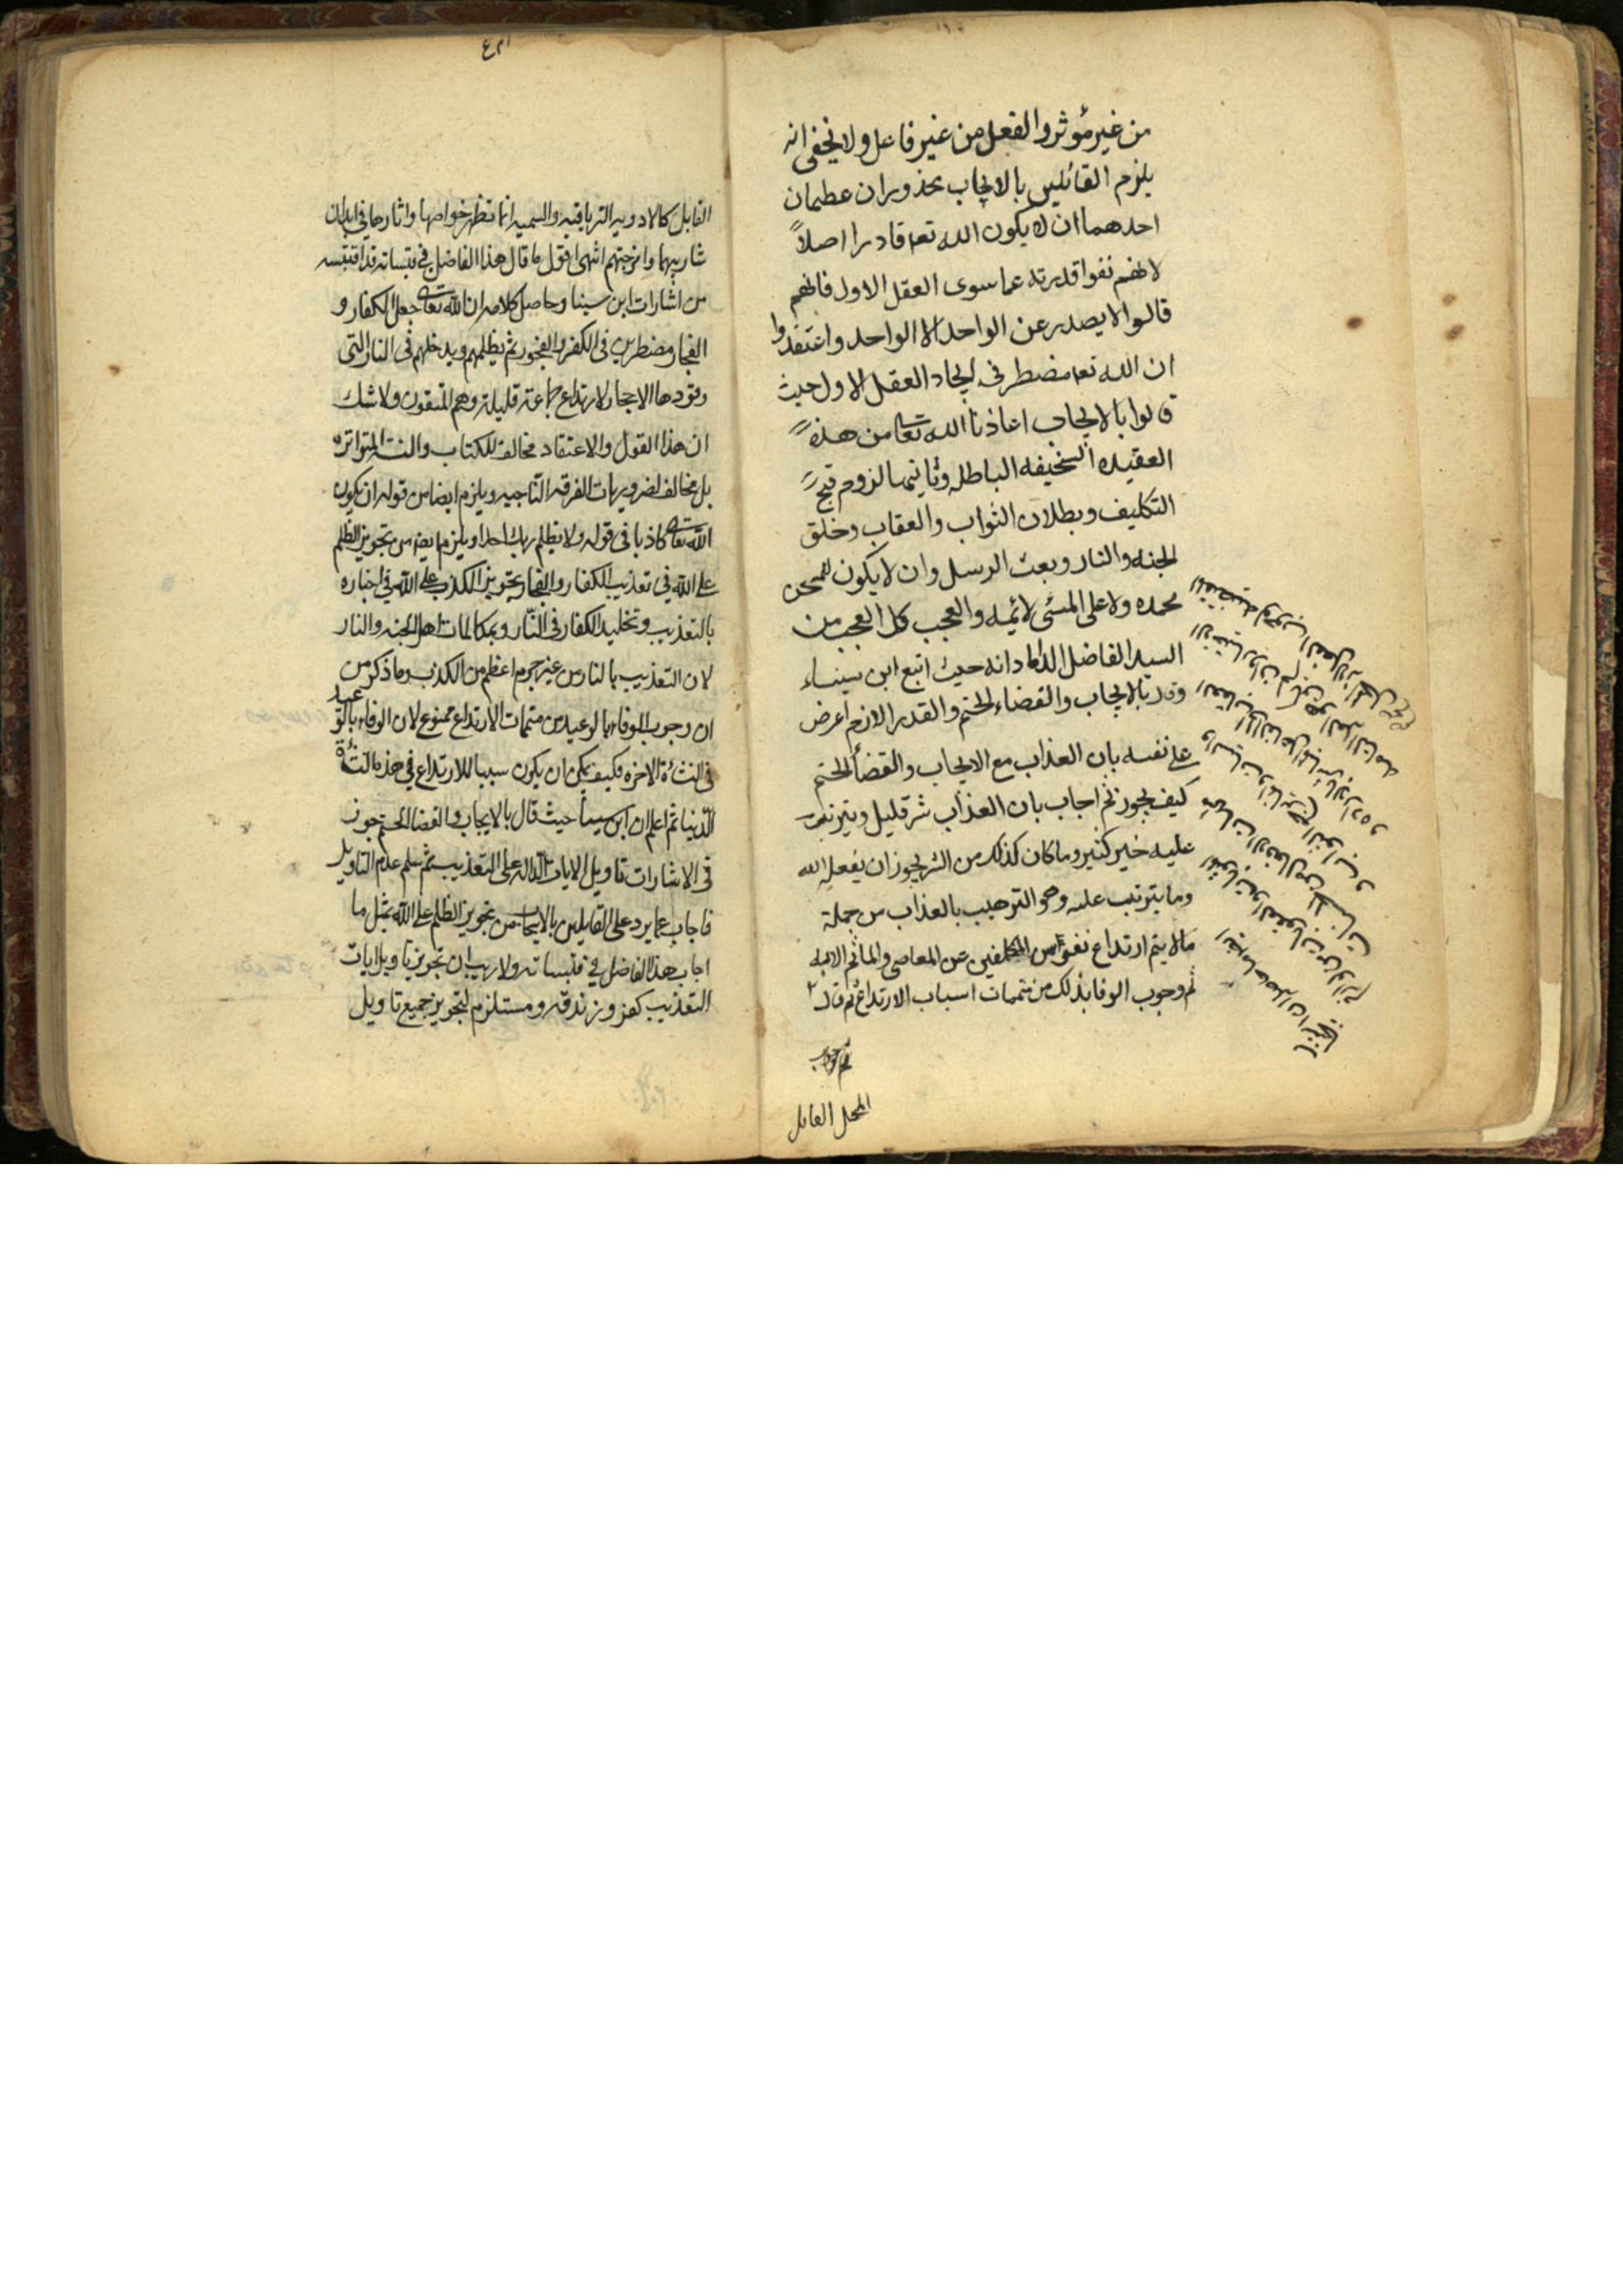 من غير مؤثر والفعل من غير فاعل ولا يخفى انه
يلزم القائلين بالايجاب محذوران عظيمان
احدهما ان لا يكون الله تعه قادرا اصلاً
لانهم نفوا قدرته عما سوى العقل الاول فانهم
قالوا لا يصدر عن الواحد الا الواحد واعتقدوا
ان الله تعه مضطر في ايجاد العقل الاول حيث
قالوا بالايجاب اعاذنا الله تعالى من هذه
العقيده السخيفه الباطله وثانيهما لزوم قبح
التكليف وبطلان الثواب والعقاب وخلق
الجنه والنار وبعث الرسل وان لا يكون للمحسن
محمده ولا على المسئى لائمه والعجب كل العجب من
السيد الفاضل الداماد انه حيث اتبع ابن سيناء
وقال بالايجاب والقضاء الحتم والقدر اللازم اعرض
على نفسه بان العذاب مع الايجاب والقضأ الحتم
كيف يجوز ثم اجاب بان العذاب شر قليل ويترتب
عليه خير كثير وما كان كذلك من الشر يجوز ان يفعله الله
وما يترتب عليه وهو الترهيب بالعذاب من جملة
ما لا يتم ارتداع نفوس المكلفين عن المعاصى والمأثم الا به
ثم وجوب الوفا بذلك من متممات اسباب الارتداع ثم قال
المحل القابل
القابل كالادويه الترياقيه والسميه انما تظهر خواصها واثارها في ابدان
شاربيها وامزجتهم انتهى اقول ما قال هذا الفاضل في قبساته قد اقتبسه
من اشارات ابن سينا وحاصل كلامه ان الله تعالى جعل الكفار و
الفجار مضطرين في الكفر والفجور ثم يظلمهم ويدخلهم في النار التى
وقودها الاحجار لارتداع جماعة قليلة وهم المتقون ولا شك
ان هذا القول والاعتقاد مخالف للكتاب والسنة المتواتره
بل مخالف لضروريات الفرقه الناجيه ويلزم ايضا من قوله ان يكون
الله تعالى كاذبا في قوله ولا يظلم ربك احدا ويلزم ايضا من تجويز الظلم
على الله في تعذيب الكفار والفجار تجويز الكذب على الله في اخباره
بالتعذيب وتخليد الكفار في النار وبمكالمات اهل الجنه والنار
لان التعذيب بالنار من غير جرم اعظم من الكذب وما ذكر من
ان وجوب الوفاء بالوعيد من متممات الارتداع ممنوع لان الوفاء بالوعيد
في النشأة الاخره فكيف يمكن ان يكون سببا للارتداع في هذه النشأة
الدنيا ثم اعلم ان ابن سينا حيث قال بالايجاب والقضا الحتم جوز
في الاشارات تاويل الايات الداله على التعذيب ثم سلم عدم التاويل
فاجاب عما يرد على القايلين بالايجاب من تجويز الظلم على الله بمثل ما
اجاب هذا الفاضل في قبساته ولا ريب ان تجويز تاويل ايات
التعذيب كفر وزندقه ومستلزم لتجويز جميع تاويل